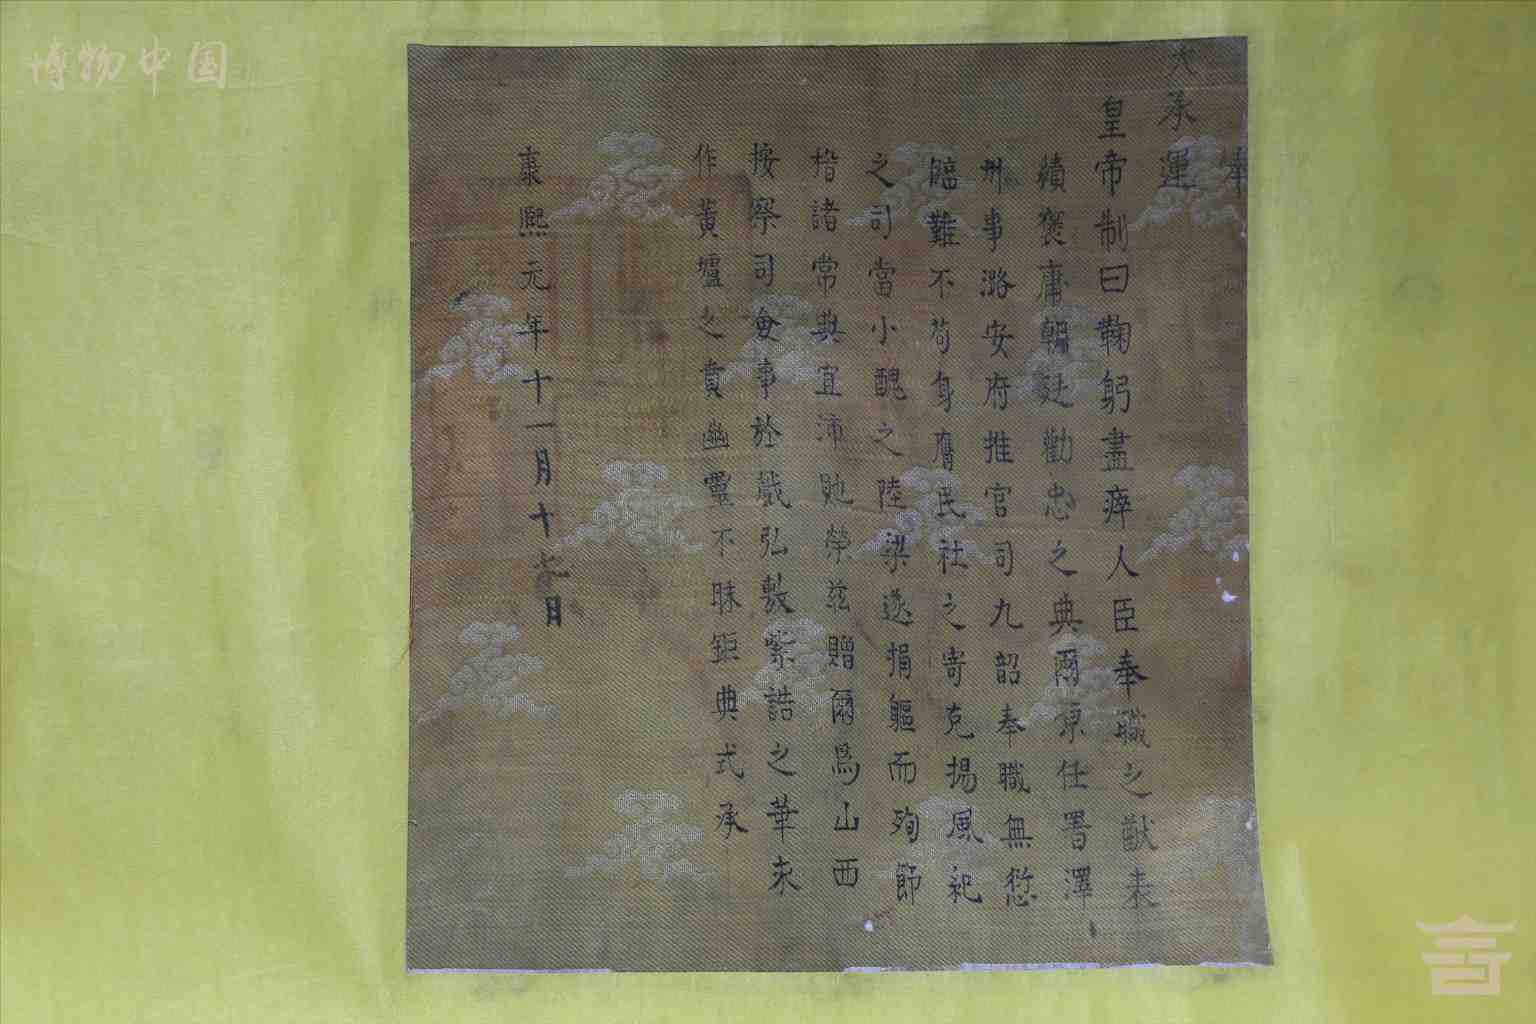 奉
天承運
皇帝制曰鞠躬盡瘁人臣奉職之猷表
績褒庸朝廷勸忠之典爾原任署澤
州事潞安府推官司九韶奉職無愆
臨難不苟身膺民社之寄克揚風紀
之司當小醜之陸梁遂捐軀而殉節
揩諸常典宜沛貤榮茲贈爾爲山西
按察司僉事於戲弘敷紫誥之華永
作黃壚之賁幽靈不昧鉅典式承
康熙元年十一月十七日
博物中国